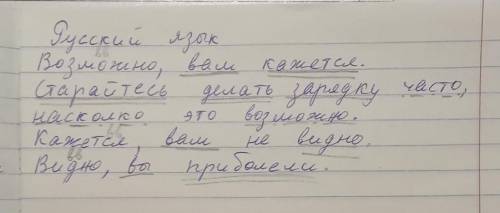 Русский язык
Возможно, вам кажется.
Старайтесь делать зарядку часто,
насколко это возможно.
Кажется, вам не видно.
Видно, вы приболели.